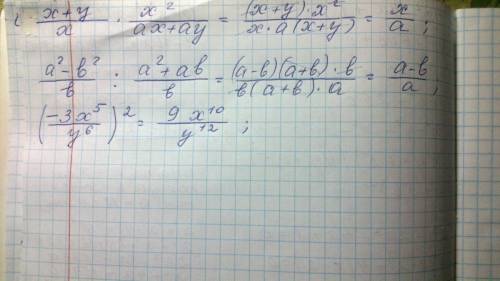 (x+y)/x · x²/(ax+ay) = (x+y)·x²/(x·a(x+y)) = x/a ;
(a²-b²)/b : (a²+ab)/b = (a-b)(a+b)·b/(b(a+b)·a) = (a-b)/a ;
(-3x⁵/y⁶)² = 9x¹⁰/y¹² ;